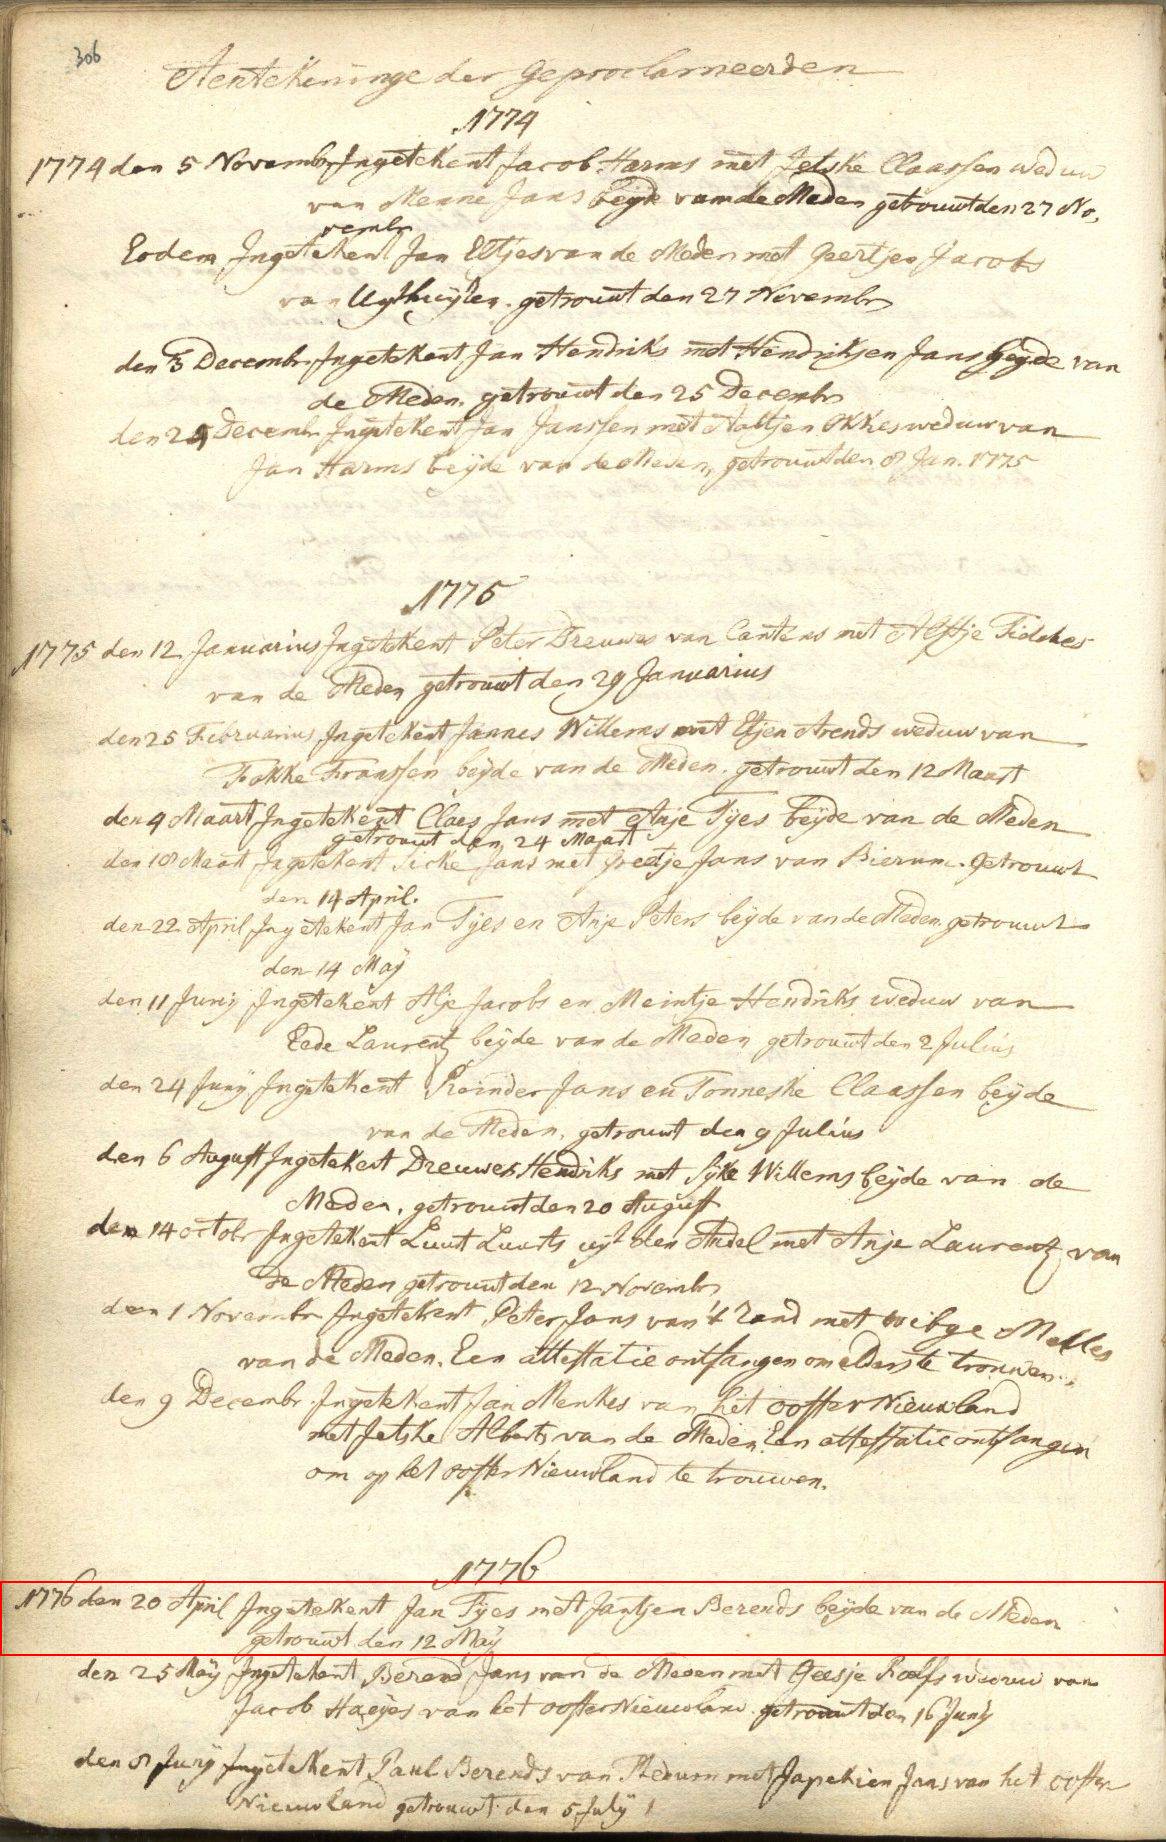 306
Aentekeninge der Geproclameerden
1774
1774 den 5 Novembr Ingetekent Jacob Harms met Jetske Claassen weduw
van Menne Jans beijde van de Meden getrouwt den 27 No,
vembr
Eodem Ingetekent Jan Eltjes van de Meden met Geertjen Jacobs
van Uythuysen. getrouwt den 27 Novembr
den 3 Decembr Ingetekent Jan Hendriks met Hendrikjen Jans beyde van
de Meden. getrouwt den 25 Decembr
den 24 Decembr Ingetekent Jan Janssen met Aaltjen Okkes weduw van
Jan Harms beyde van de Meden, getrouwt den 8 Jan. 1775
1775
1775 den 12 Januarius Ingetekent Peter Dreuwes van Cantens met Alftje Fidskes
van de Meden getrouwt den 29 Januarius
den 25 Februarius Ingetekent Jannes Willems met Etjen Arends weduw van
Fokke Franssen beyde van de Meden. getrouwt den 12 Maart
den 4 Maart Ingetekent Claes Jans met Anje Tyes beyde van de Meden
getrouwt den 24 Maart
den 18 Maart Ingetekent Sicke Jans met Greetje Jans van Bierum. getrouwt
den 14 April.
den 22 April Ingetekent Jan Tyes en Anje Peters beyde van de Meden. getrouwt
den 14 Maÿ
den 11 Junij Ingetekent Alje Jacobs en Meintje Hendriks weduw van
Eede Laurentz beyde van de Meden getrouwt den 2 Julius
den 24 Junij Ingetekent Reinder Jans en Tonneske Claassen beyde
van de Meden. getrouwt den 9 Julius
den 6 August Ingetekent Dreuwes Hendriks met Syke Willems beyde van de
Meden. getrouwt den 20 August
den 14 octobr Ingetekent Luut Luurts uyt den Andel met Anje Laurentz van
de Meden getrouwt den 12 Novembr
den 1 Novembr Ingetekent Peter Jans van 't Zand met wibge Melles
van de Meden. Een attestatie ontfangen om elders te trouwen.
den 9 Decembr Ingetekent Jan Menkes van het ooster Nieuwland
met Jetske Alberts van de Meden. Een attestatie ontfangen
om op het ooster Nieuwland te trouwen.
1776
1776 den 20 April Ingetekent Jan Tyes met Jantjen Berends beyde van de Meden
getrouwt den 12 Maÿ
den 25 Maÿ Ingetekent Berend Jans van de Meden met Geesje Roelfs weduw van
Jacob Haeyes van het ooster Nieuwland. getrouwt den 16 Junÿ
den 8 Junÿ Ingetekent Paul Berends van Stedum met Japekien Jans van het ooster
Nieuwland getrouwt den 5 Julÿ